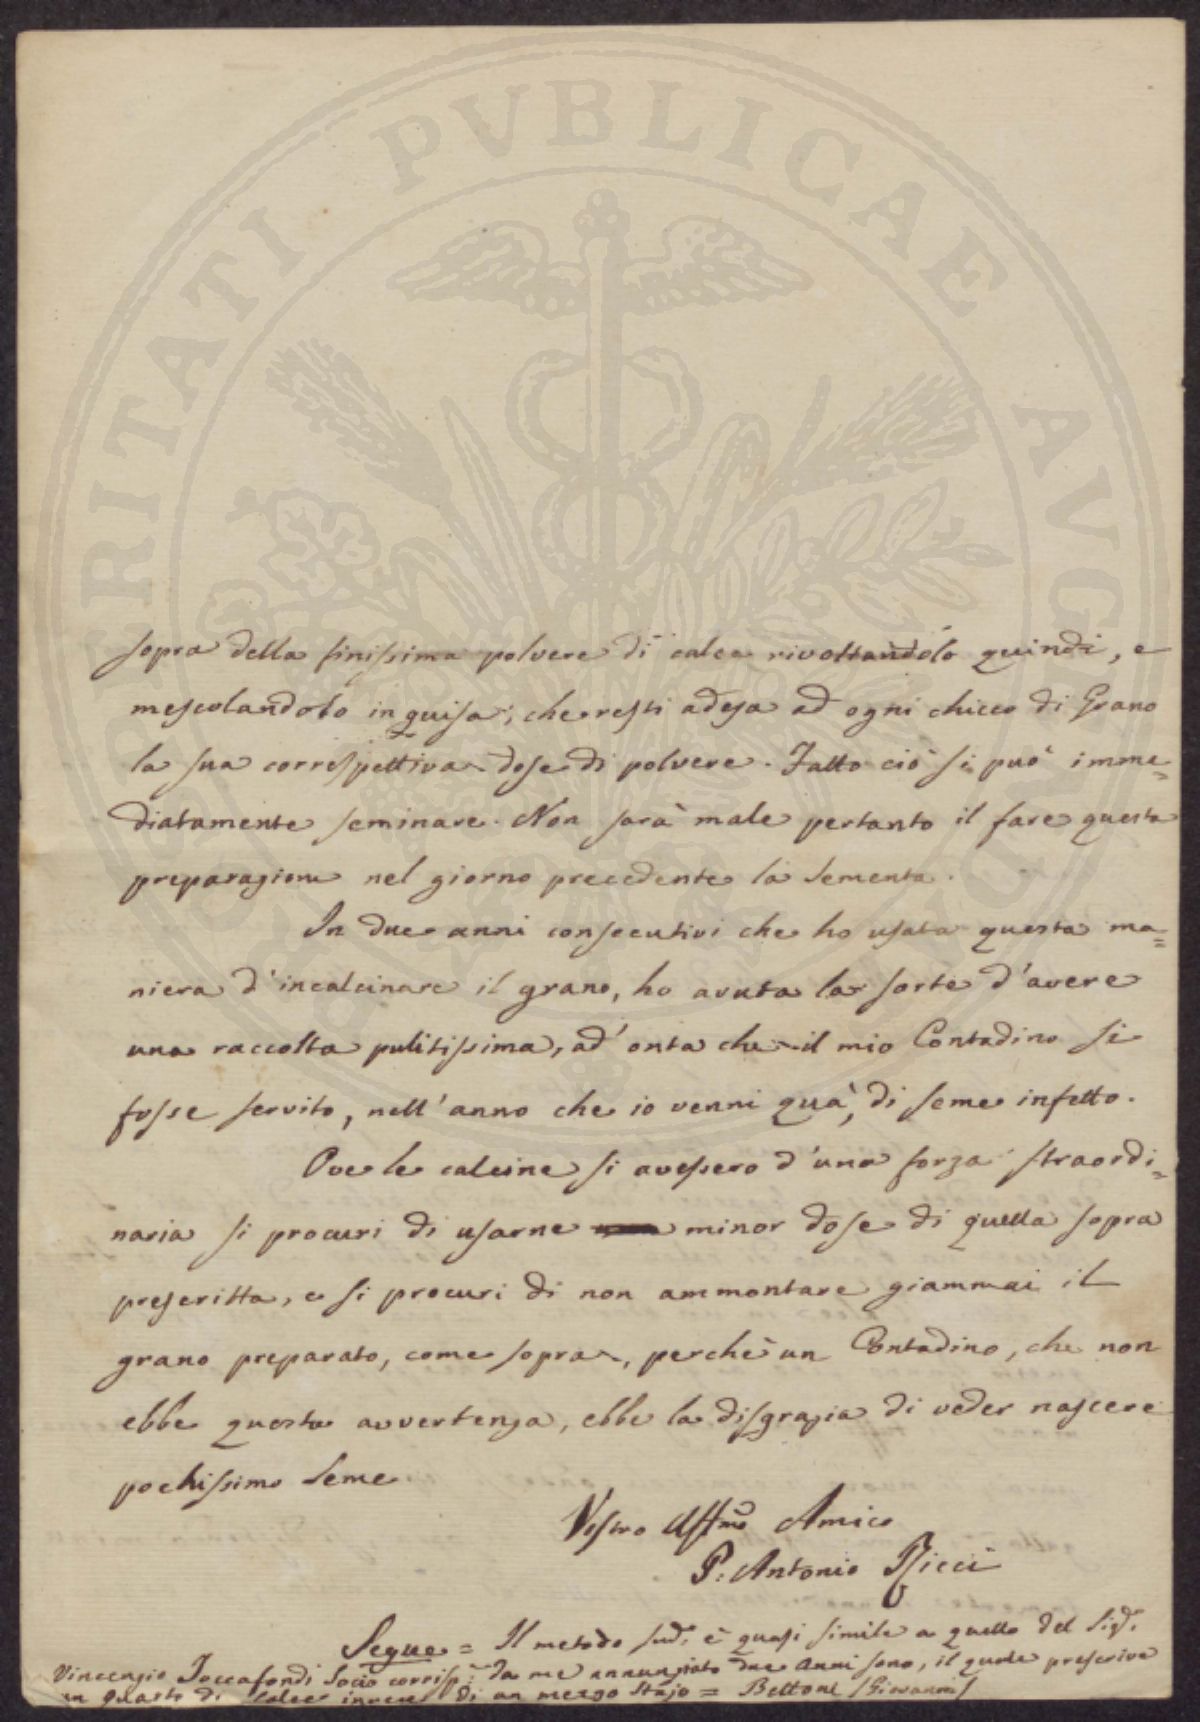 PROSPERITATI PVBLICAE AVGENDAE
sopra della finissima polvere di calce rivoltandolo quindi, e
mescolandolo in guisa, che resti adesa ad ogni chicco di Grano
la sua correspettiva dose di polvere. Fatto ciò si può imme=
diatamente seminare. Non sarà male pertanto il fare questa
preparazione nel giorno precedente la sementa.
In due anni consecutivi che ho usata questa ma=
niera d'incalcinare il grano, ho avuta la sorte d'avere
una raccolta pulitissima, ad' onta che il mio Contadino si
fosse servito, nell'anno che io venni quà, di seme infetto.
Ove le calcine si avessero d'una forza straordi=
naria si procuri di usarne minor dose di quella sopra
prescritta, e si procuri di non ammontare giammai il
grano preparato, come sopra, perchè un Contadino, che non
ebbe questa avvertenza, ebbe la disgrazia di veder nascere
pochissimo seme.
Vostro Affmo Amico
P. Antonio Ricci
Segue = Il metodo sud. è quasi simile a quello del Sig.
Vincenzio Toccafondi Socio corrisp. da me annunziato due anni sono, il quale prescrive
un quarto di calce invece di un mezzo Stajo = Bettoni /Giovanni/